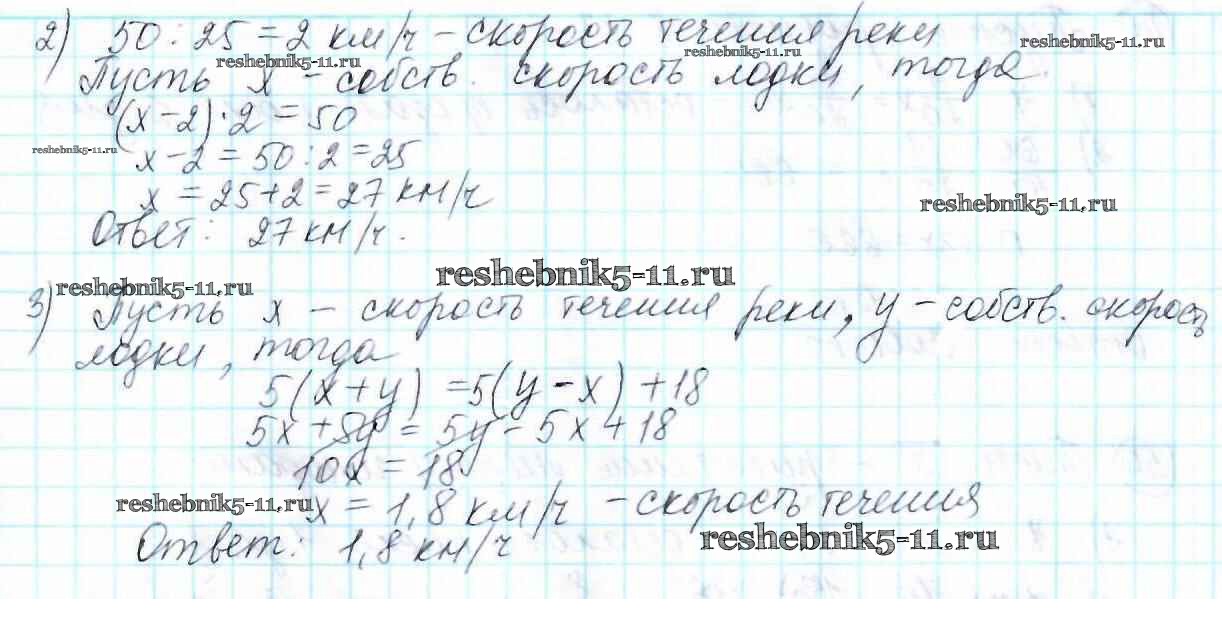 2) 50 : 25 = 2 км/ч - скорость течения реки
reshebnik5-11.ru
reshebnik5-11.ru
reshebnik5-11.ru
Пусть x - собств. скорость лодки, тогда
(x-2)·2 = 50
reshebnik5-11.ru
x-2 = 50:2 = 25
x = 25+2 = 27 км/ч
reshebnik5-11.ru
Ответ: 27 км/ч.
reshebnik5-11.ru
reshebnik5-11.ru
3) Пусть x - скорость течения реки, y - собств. скорость
лодки, тогда
5(x+y) = 5(y-x) + 18
5x + 5y = 5y - 5x + 18
10x = 18
reshebnik5-11.ru
x = 1,8 км/ч - скорость течения
reshebnik5-11.ru
Ответ: 1,8 км/ч